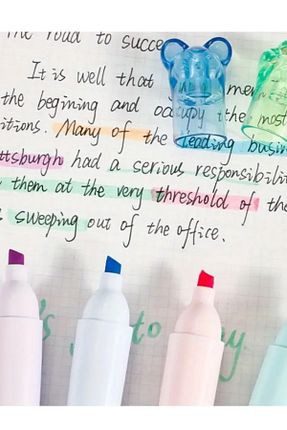 The road to succe
It is well that men
the begining and occupy the most
itions. Many of the leading busin
ttsburgh had a serious responsibilit
them at the very threshold of the
sweeping out of the office.